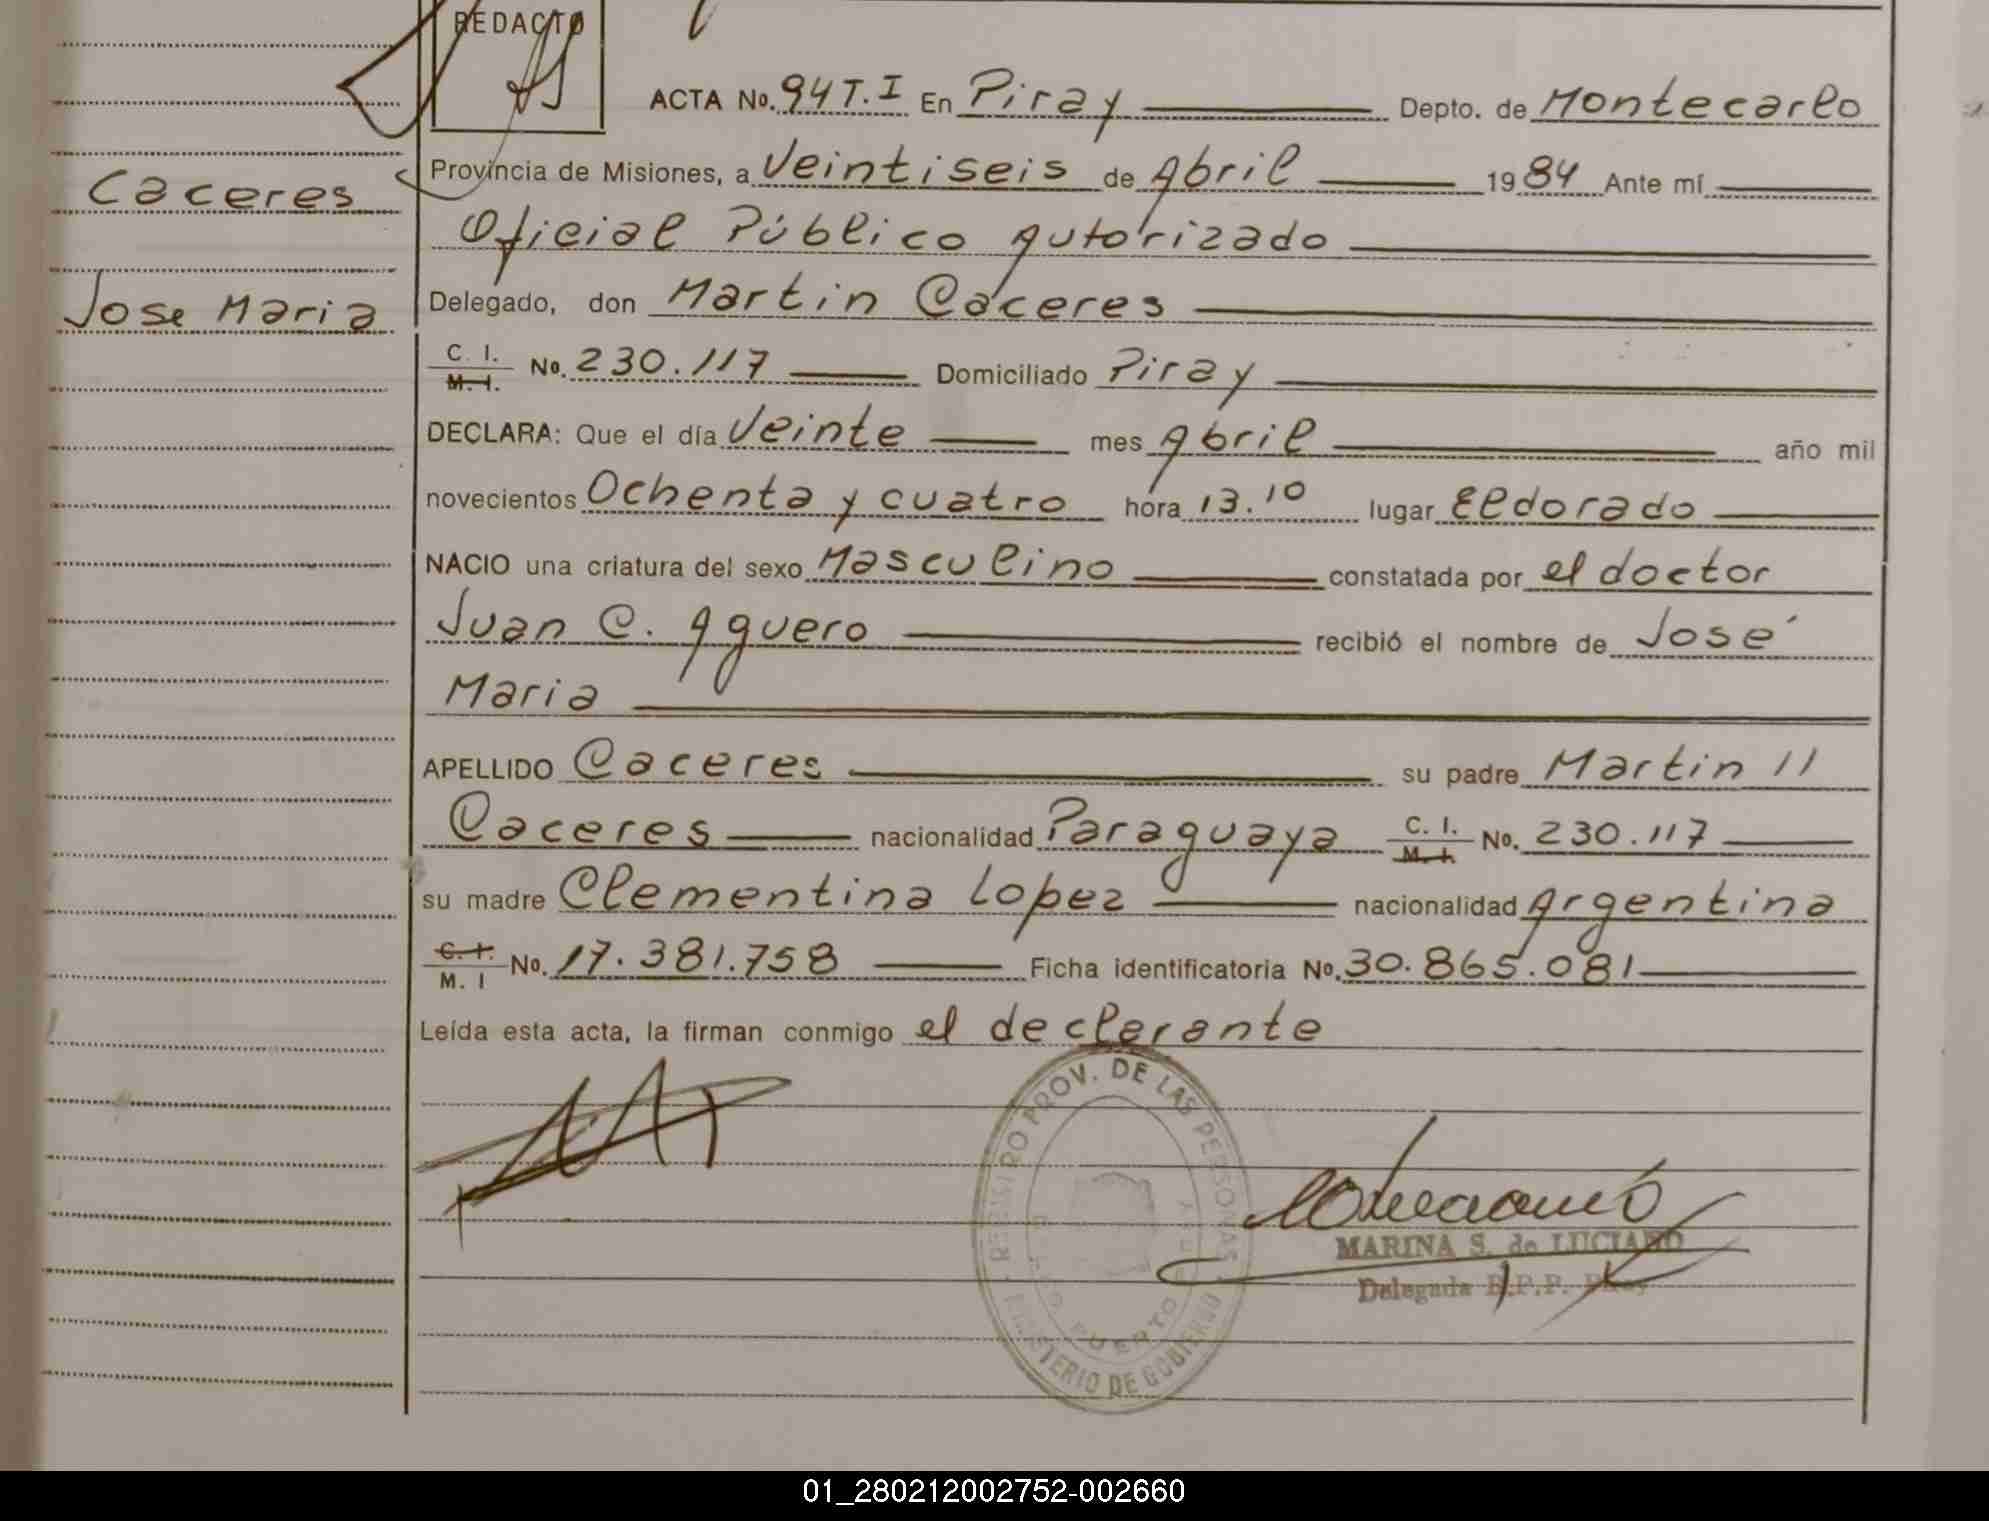 REDACTO
ACTA No. 94 T. I En Piray Depto. de Montecarlo
Caceres
Provincia de Misiones, a Veintiseis de Abril 1984 Ante mí
Oficial Público Autorizado
Jose Maria
Delegado, don Martin Caceres
C. I. M. I. No. 230.117 Domiciliado Piray
DECLARA: Que el día Veinte mes Abril año mil
novecientos Ochenta y cuatro hora 13.10 lugar Eldorado
NACIO una criatura del sexo Masculino constatada por el doctor
Juan C. Aguero recibió el nombre de José
Maria
APELLIDO Caceres su padre Martin II
Caceres nacionalidad Paraguaya C. I. M. I. No. 230.117
su madre Clementina Lopez nacionalidad Argentina
C. I. M. I No. 17.381.758 Ficha identificatoria No. 30.865.081
Leída esta acta, la firman conmigo el declerante
REGISTRO PROV. DE LAS PERSONAS
MINISTERIO DE GOBIERNO
PUERTO
MARINA S. de LUCIANO
Delegada R.P.P. Piray
01_280212002752-002660